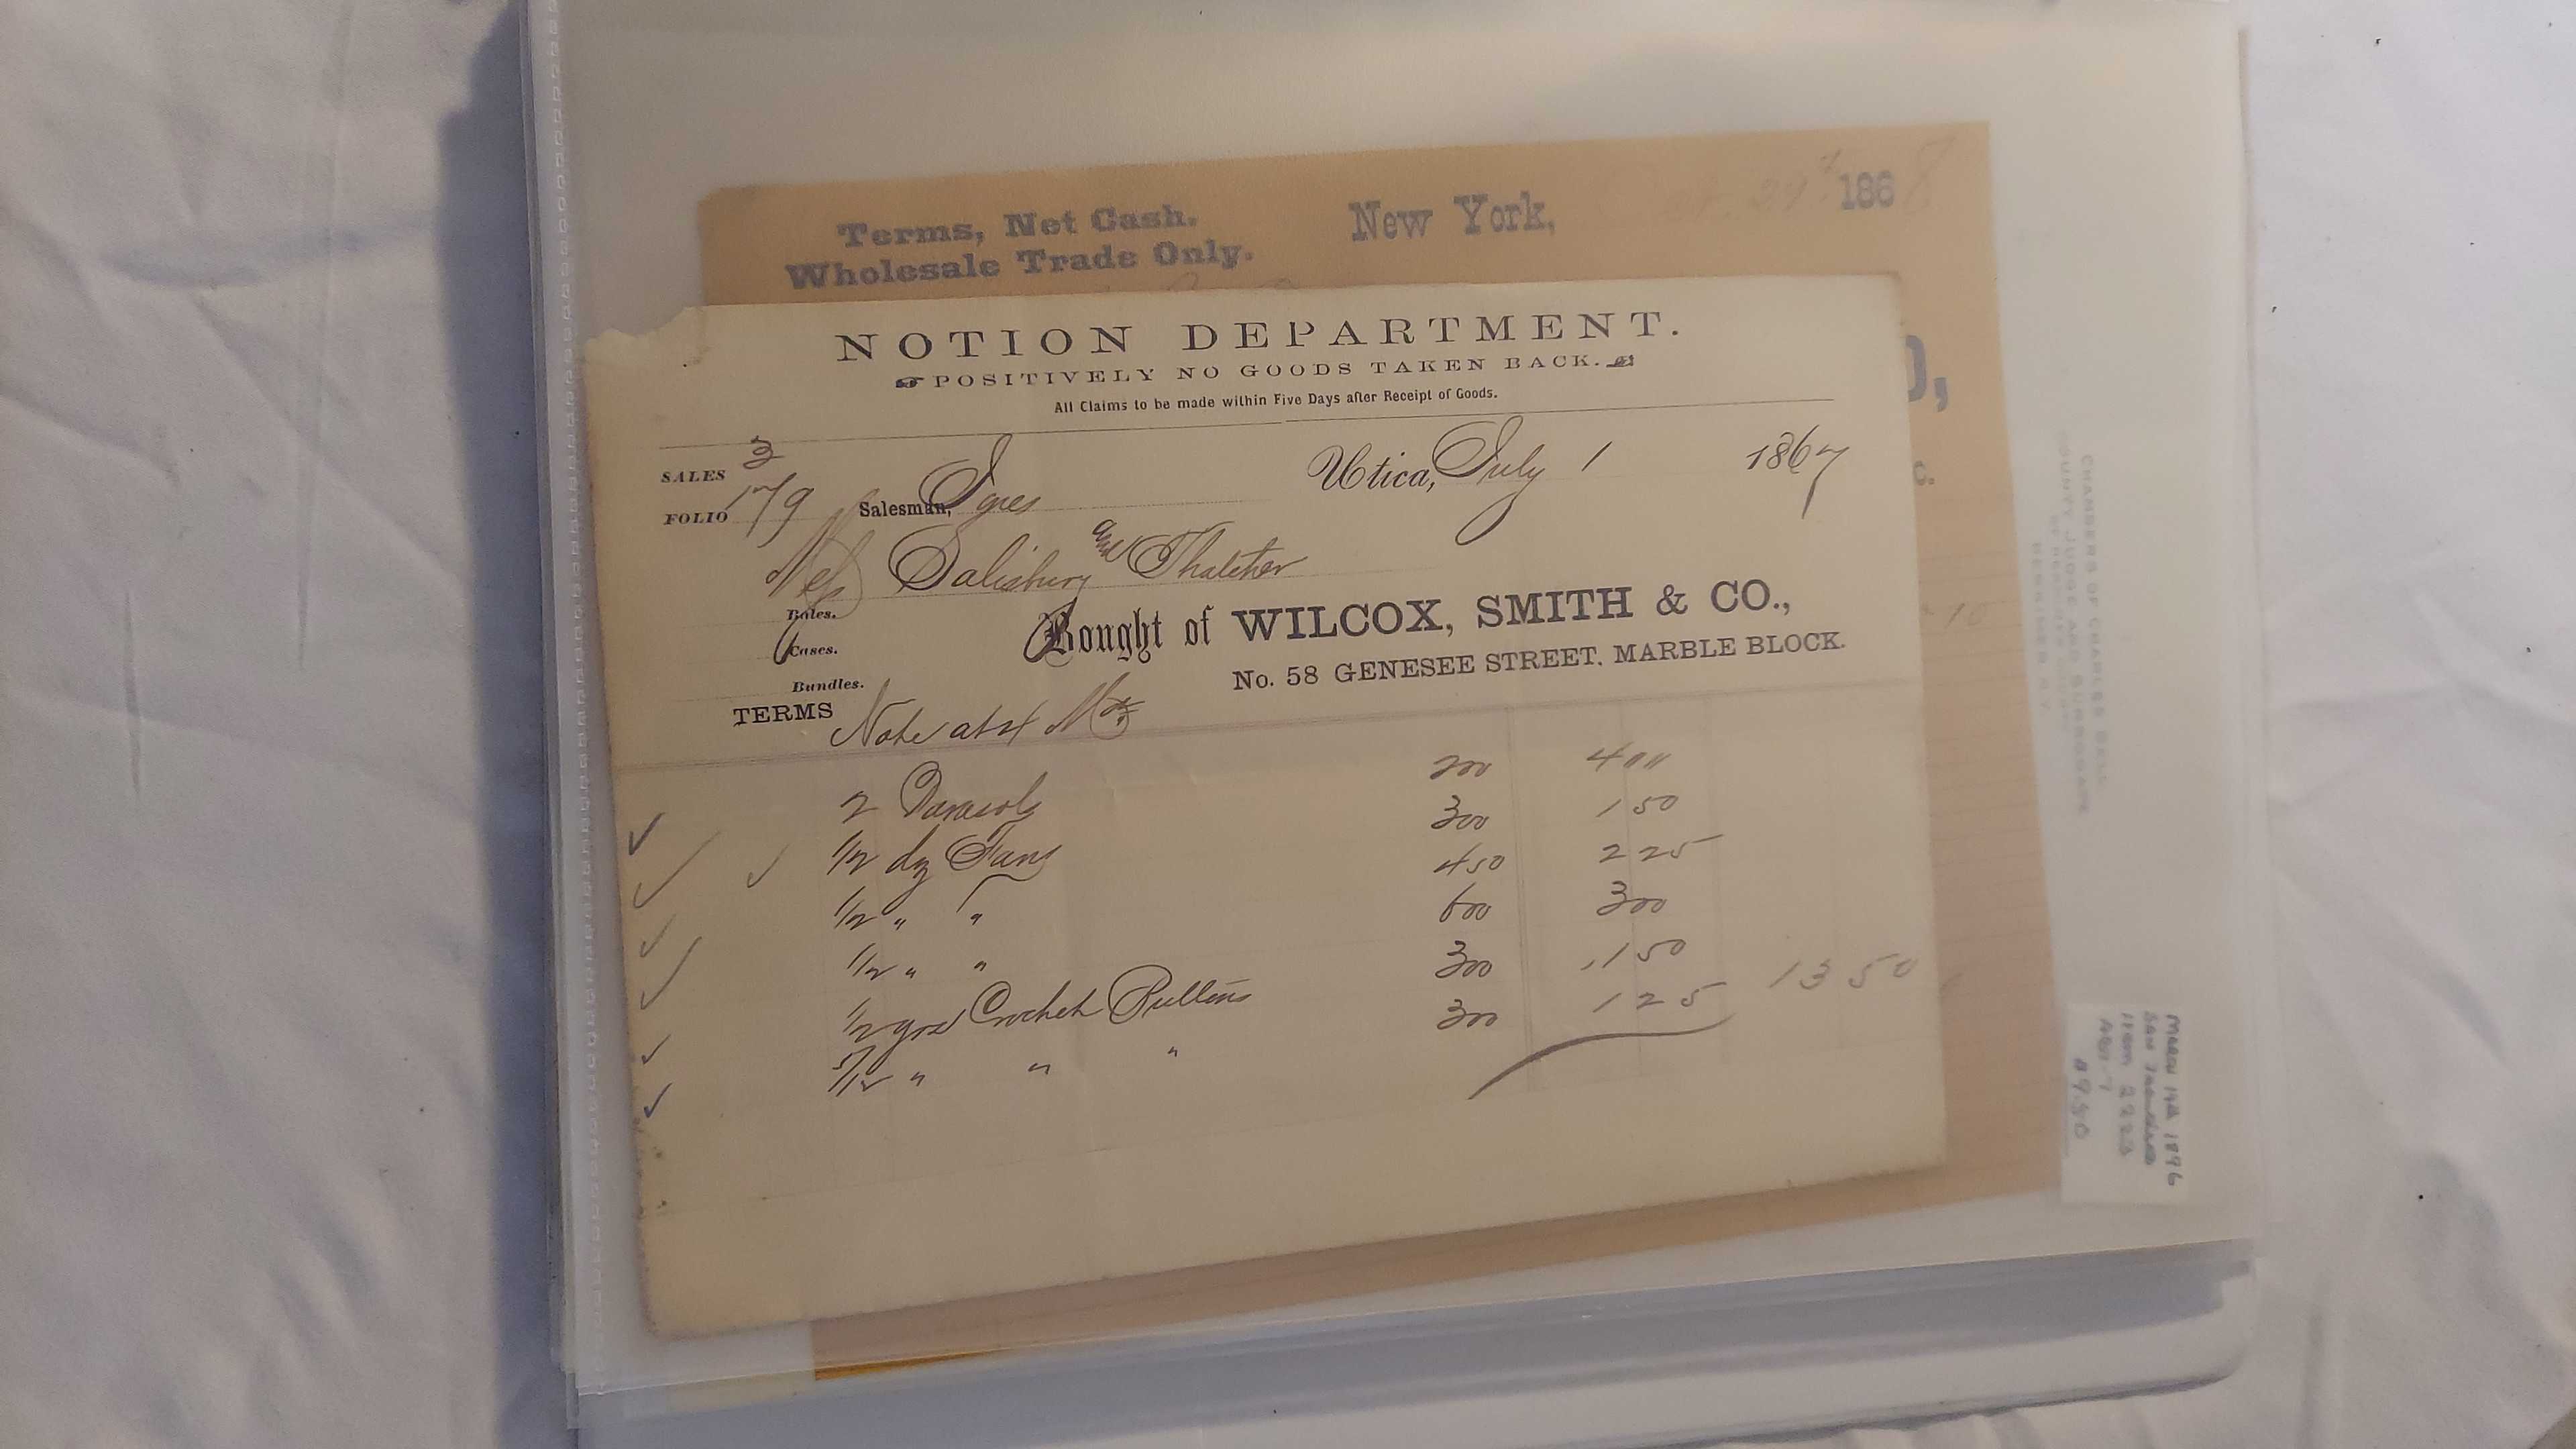 Terms, Net Cash.
Wholesale Trade Only.
New York, 29 1868
NOTION DEPARTMENT.
POSITIVELY NO GOODS TAKEN BACK.
All Claims to be made within Five Days after Receipt of Goods.
SALES 3
FOLIO 179 Salesman,
Utica, July 1 1867
Salisbury and Thatcher
Bales.
Cases.
Bundles.
Bought of WILCOX, SMITH & CO.,
No. 58 GENESEE STREET. MARBLE BLOCK.
TERMS Note at 4 Mos
2 Parasols 200 400
1/2 dz Fans 300 150
1/2 " " 450 225
1/2 " " 600 300
1/2 gro Crochet Buttons 300 150
5/12 " " " 300 125 1350
CHAMBERS OF CHARLES
COUNTY JUDGE AND SURROGATE
March 14th 1896